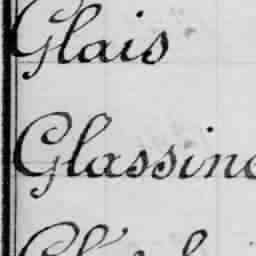 Glais
Glassine